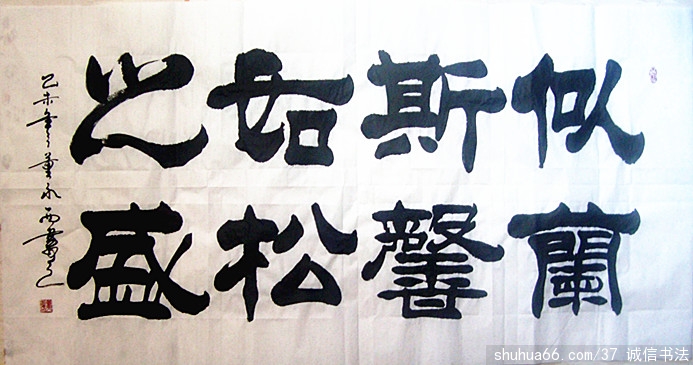 似蘭
斯馨
如松
之盛
乙未年董永西書
shuhua66.com/37 诚信书法